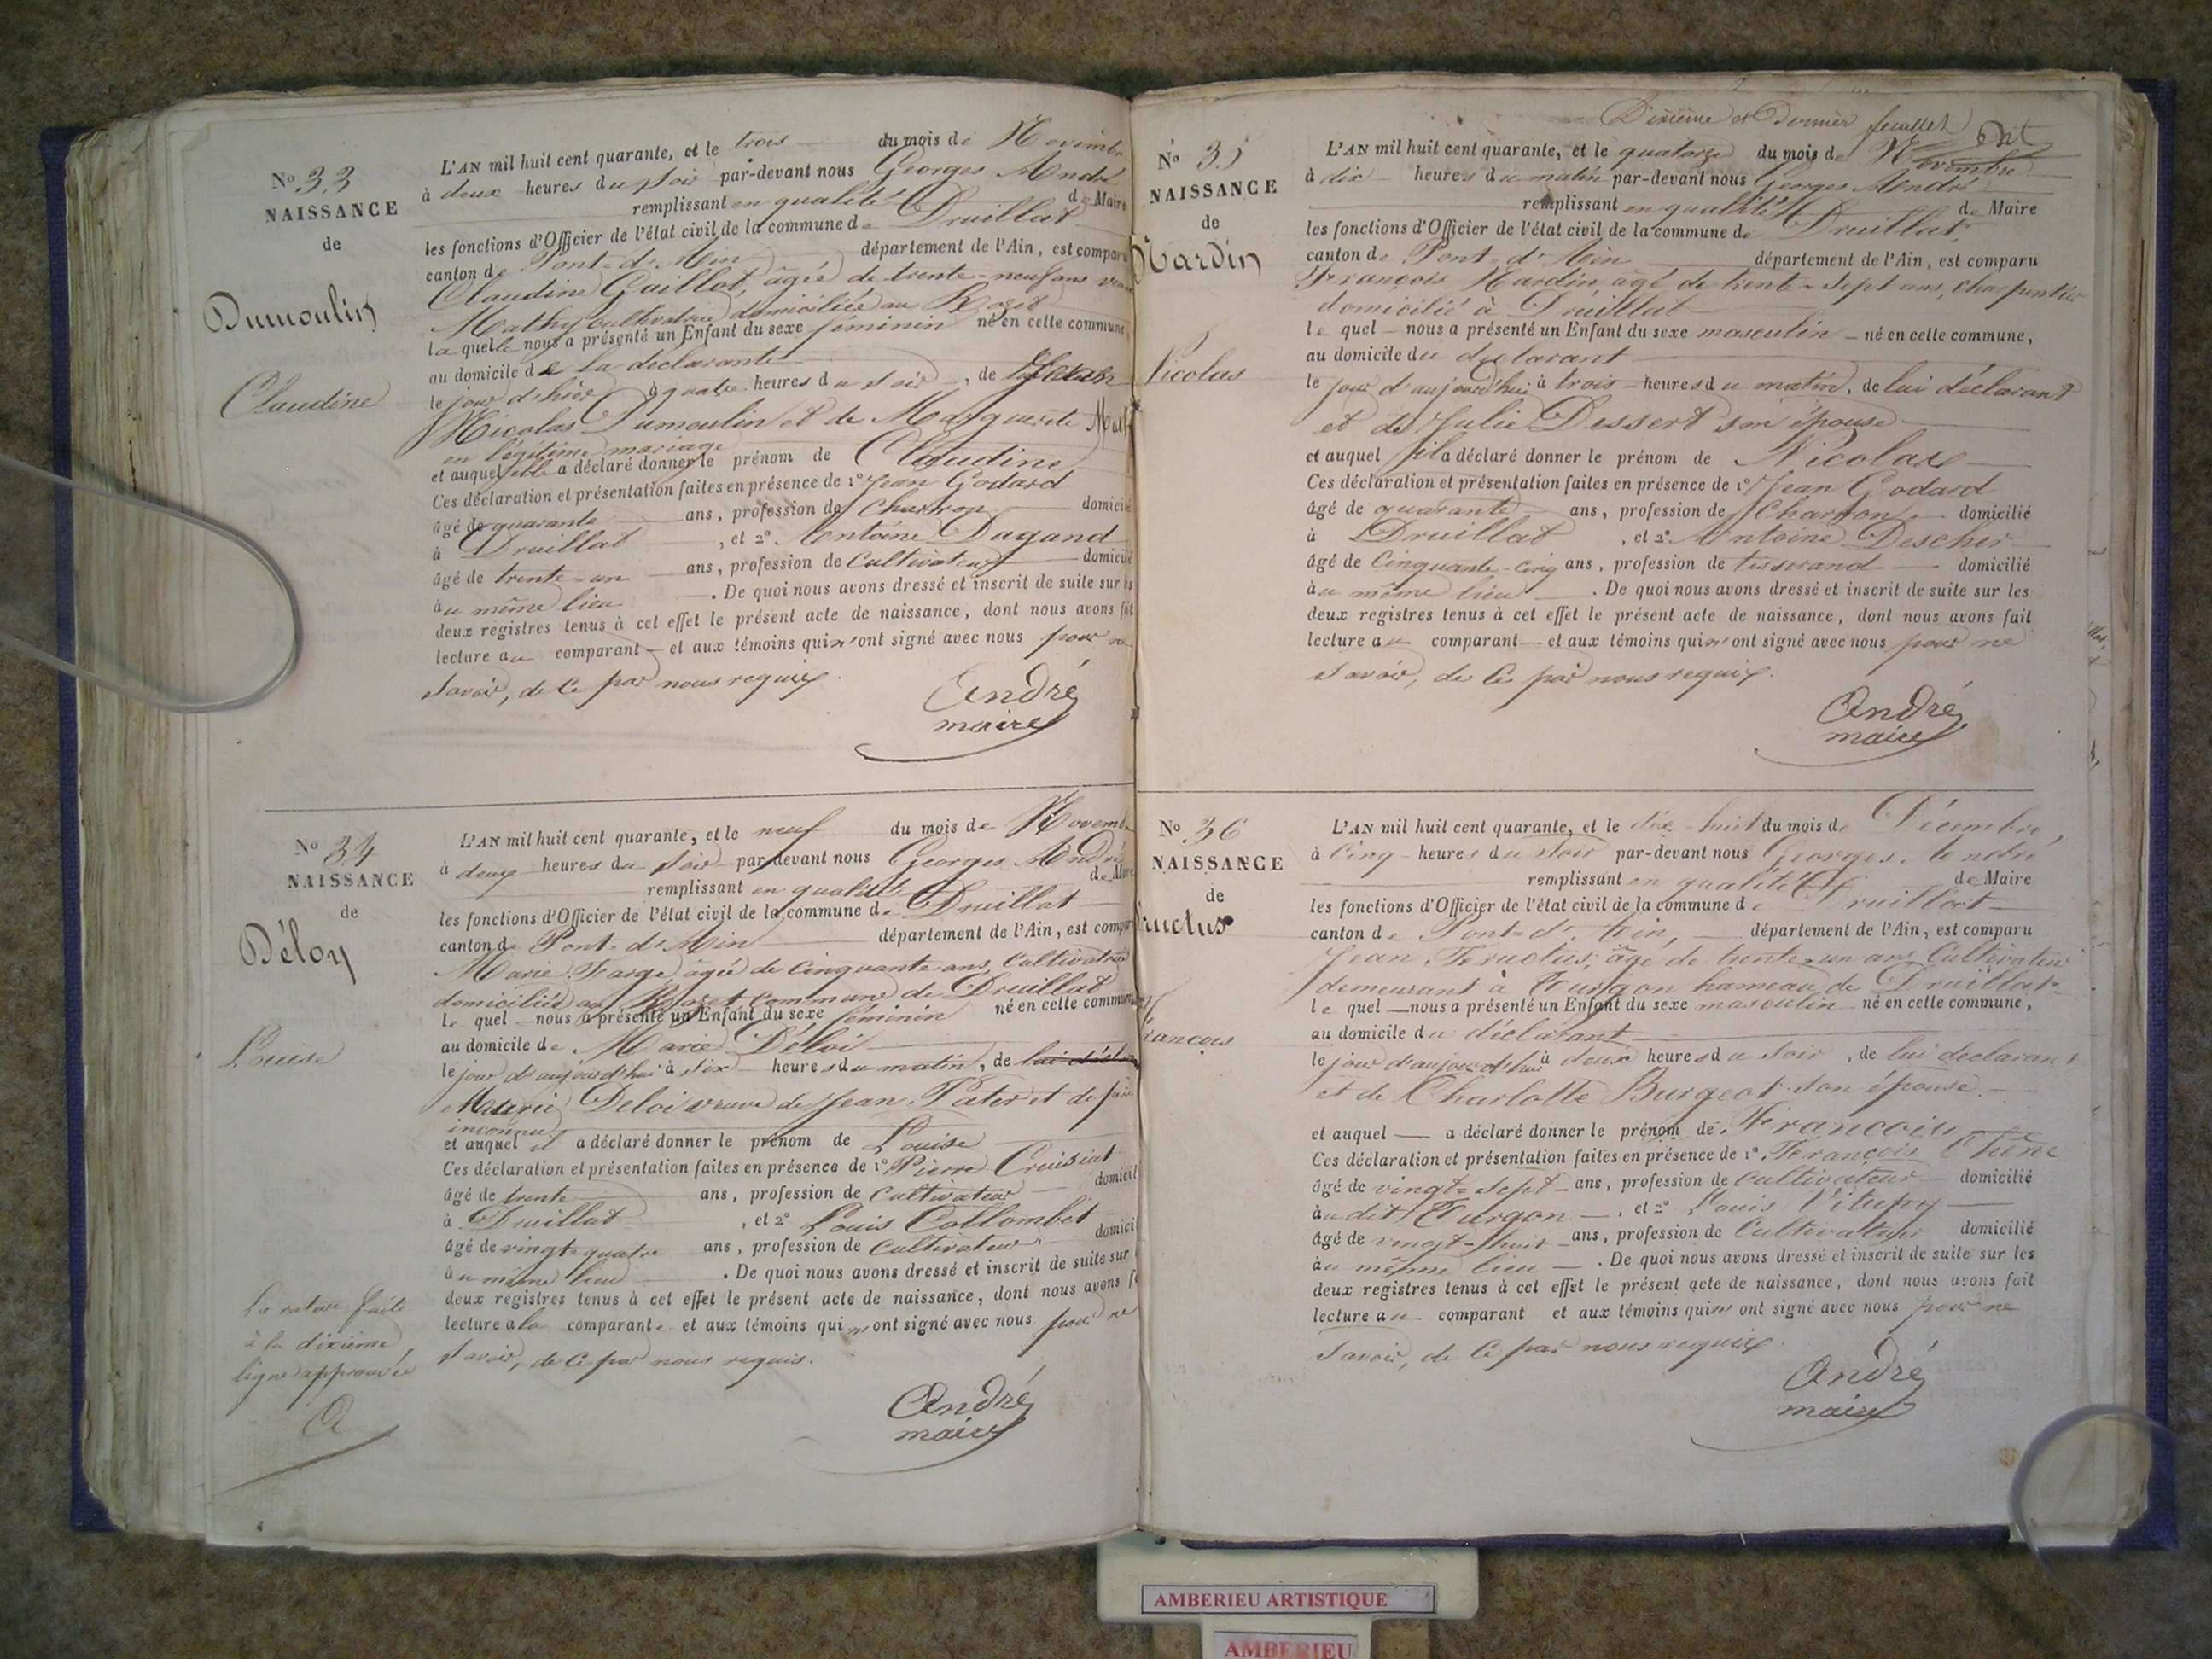 N.º 33
NAISSANCE
de
Dumoulin
Claudine
L'AN mil huit cent quarante, et le trois du mois de Novembre
à deux heures du soir par-devant nous Georges André
remplissant en qualité de Maire
les fonctions d'Officier de l'état civil de la commune de Druillat
canton de Pont-d'Ain département de l'Ain, est comparu
Claudine Gaillot, âgée de trente-neuf ans
Mathy cultivatrice domiciliée au
la quelle nous a présenté un Enfant du sexe féminin né en cette commune,
au domicile de la déclarante
le jour d'hier à quatre heures du soir, de
Nicolas Dumoulin et de Marguerite
en légitime mariage
et auquel elle a déclaré donner le prénom de Claudine
Ces déclaration et présentation faites en présence de 1º Jean Godard
âgé de quarante ans, profession de Charron domicilié
à Druillat, et 2º Antoine Dagand
âgé de trente-un ans, profession de Cultivateur domicilié
au même lieu. De quoi nous avons dressé et inscrit de suite sur les
deux registres tenus à cet effet le présent acte de naissance, dont nous avons fait
lecture au comparant et aux témoins qui n'ont signé avec nous pour ne
savoir, de ce par nous requis.
André
maire
N.º 34
NAISSANCE
de
Déloy
Louise
L'AN mil huit cent quarante, et le neuf du mois de Novembre
à deux heures du soir par-devant nous Georges André
remplissant en qualité de Maire
les fonctions d'Officier de l'état civil de la commune de Druillat
canton de Pont-d'Ain département de l'Ain, est comparu
Marie Farge âgée de Cinquante ans, Cultivatrice
domiciliée au commune de Druillat
le quel nous a présenté un Enfant du sexe féminin né en cette commune
au domicile de Marie Déloi
le jour d'aujourd'hui à six heures du matin, de lui
Marie Deloi veuve de Jean Pater et de père
inconnu
et auquel il a déclaré donner le prénom de Louise
Ces déclaration et présentation faites en présence de 1º Pierre Cruisiat
âgé de trente ans, profession de Cultivateur domicilié
à Druillat, et 2º Louis Collombet
âgé de vingt-quatre ans, profession de Cultivateur domicilié
au même lieu. De quoi nous avons dressé et inscrit de suite sur
deux registres tenus à cet effet le présent acte de naissance, dont nous avons
lecture à la comparante et aux témoins qui n'ont signé avec nous pour ne
savoir, de ce par nous requis.
La rature faite
à la dixième
ligne approuvée
A
André
maire
Dixième et Dernier feuillet
N.º 35
NAISSANCE
de
Hardin
Nicolas
L'AN mil huit cent quarante, et le quatorze du mois de Novembre
à dix heures du matin par-devant nous Georges André
remplissant en qualité de Maire
les fonctions d'Officier de l'état civil de la commune de Druillat
canton de Pont-d'Ain département de l'Ain, est comparu
François Hardin, âgé de trente-sept ans, charpentier
domicilié à Druillat
le quel nous a présenté un Enfant du sexe masculin né en cette commune,
au domicile du déclarant
le jour d'aujourd'hui à trois heures du matin, de lui déclarant
et de Julie Dessert son épouse
et auquel il a déclaré donner le prénom de Nicolas
Ces déclaration et présentation faites en présence de 1º Jean Godard
âgé de quarante ans, profession de Charron domicilié
à Druillat, et 2º Antoine Descher
âgé de Cinquante-cinq ans, profession de tisserand domicilié
au même lieu. De quoi nous avons dressé et inscrit de suite sur les
deux registres tenus à cet effet le présent acte de naissance, dont nous avons fait
lecture au comparant et aux témoins qui n'ont signé avec nous pour ne
savoir, de ce par nous requis.
André
maire
N.º 36
NAISSANCE
de
Fructus
François
L'AN mil huit cent quarante, et le dix-huit du mois de Décembre,
à cinq heures du soir par-devant nous Georges André
remplissant en qualité de Maire
les fonctions d'Officier de l'état civil de la commune de Druillat
canton de Pont-d'Ain, département de l'Ain, est comparu
Jean Fructus, âgé de trente-un ans Cultivateur
demeurant à Turgon hameau de Druillat
le quel nous a présenté un Enfant du sexe masculin né en cette commune,
au domicile du déclarant
le jour d'aujourd'hui à deux heures du soir, de lui déclarant
et de Charlotte Burgeot son épouse
et auquel a déclaré donner le prénom de François
Ces déclaration et présentation faites en présence de 1º François Chêne
âgé de vingt-sept ans, profession de Cultivateur domicilié
au dit Turgon, et 2º Louis
âgé de vingt-huit ans, profession de Cultivateur domicilié
au même lieu. De quoi nous avons dressé et inscrit de suite sur les
deux registres tenus à cet effet le présent acte de naissance, dont nous avons fait
lecture au comparant et aux témoins qui n'ont signé avec nous pour ne
savoir, de ce par nous requis.
André
maire
AMBERIEU ARTISTIQUE
AMBERIEU